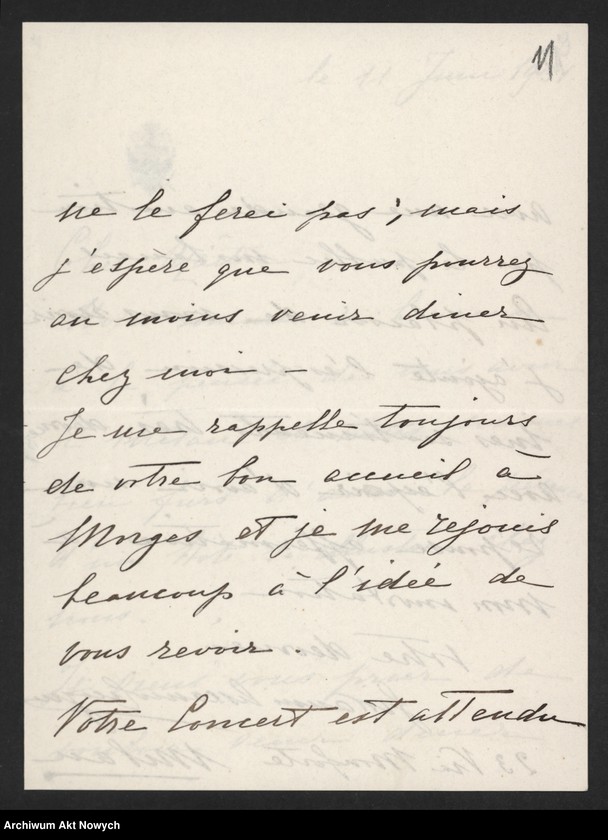 11
ne le ferei pas; mais
j'espère que vous pourrez
au moins venir diner
chez moi -
Je me rappelle toujours
de votre bon accueil à
Morges et je me rejouis
beaucoup à l'idée de
vous revoir.
Votre Concert est attendu
Archiwum Akt Nowych